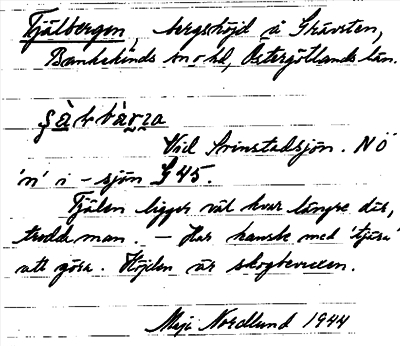 Fjälbergen, bergshöjd å Grävsten,
Bankekinds sn o hd, Östergötlands län.
Vid Svinstadsjön. NÖ
'n' i -sjön G45.
Fjälen ligger väl kvar längre där,
trodde man. — Har kanske med 'tjära'
att göra. Höjden är skogbevuxen.
Maja Nordlund 1944